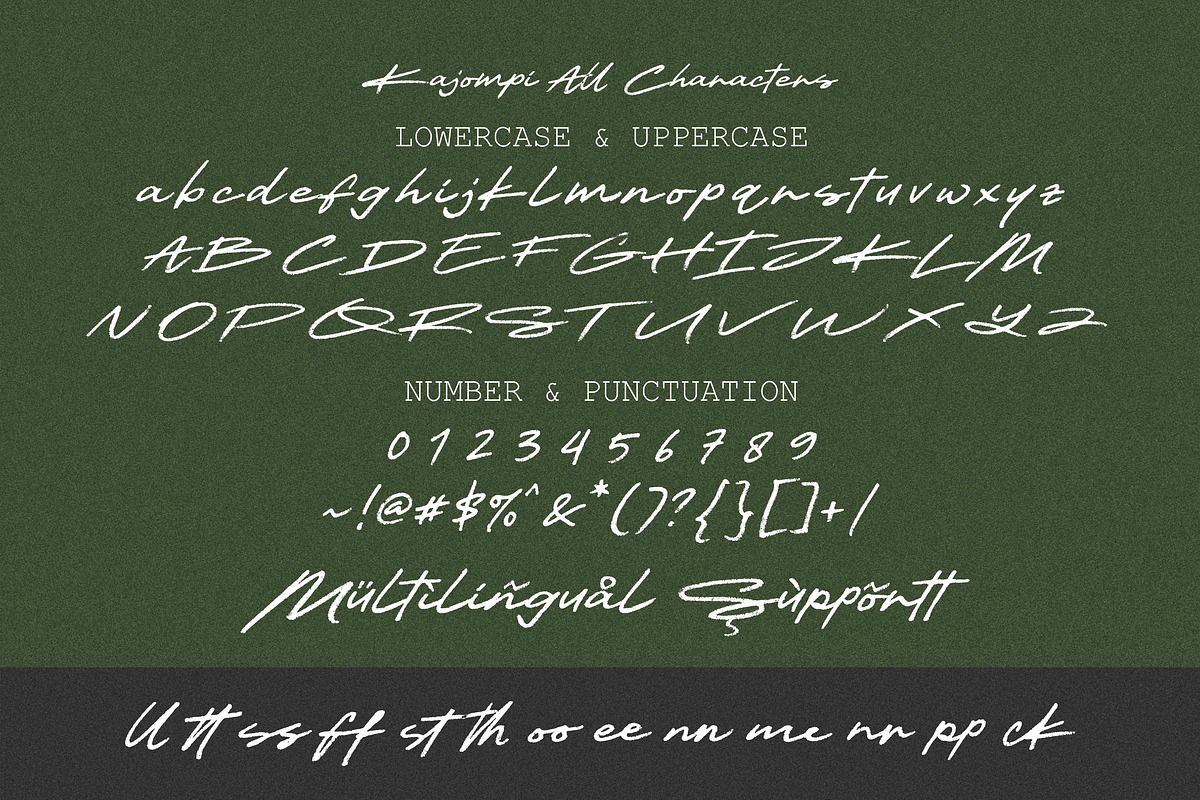 Kajompi All Characters
LOWERCASE & UPPERCASE
abcdefghijklmnopqrstuvwxyz
ABCDEFGHIJKLM
NOPQRSTUVWXYZ
NUMBER & PUNCTUATION
0123456789
~!@#$%^&*()?{}[]+/
Mültilíñguål Şùppõrtt
ll tt ss ff st th oo ee nn me nr pp ck